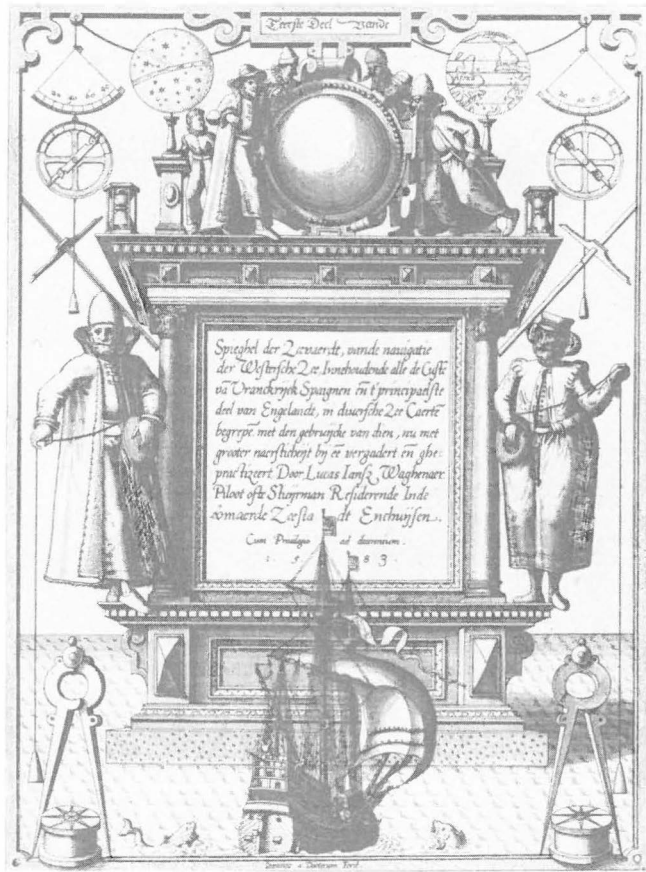 Teerste Deel Vande
Spieghel der Zeevaerdt, vande navigatie
der Westersche Zee, Innehoudende alle de Custē
vā Vranckrijck Spaignen eñ t'principaelste
deel van Engelandt, in diversche Zee Caertē
begrepē, met den gebruijcke van dien, nu met
grooter naersticheijt bij eē vergadert eñ ghe:
practizeert Door Lucas Iansz Waghenaer
Piloot ofte Stuijrman Residerende Inde
vermaerde Zeestadt Enchuijsen.
Cum Privilegio ad decennium.
1 5 83.